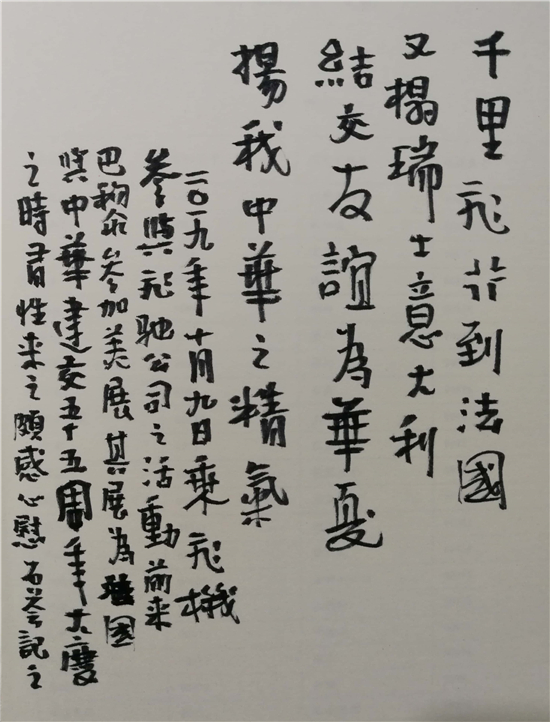 千里飛行到法國
又榻瑞士意大利
結交友誼為華憂
揚我中華之精氣
二〇一九年十月九日乘飛機
參與飛馳公司之活動前来
巴称余參加美展其展為法國
與中華建交五十五周年大慶
之時有性来之頗感心慰 記之